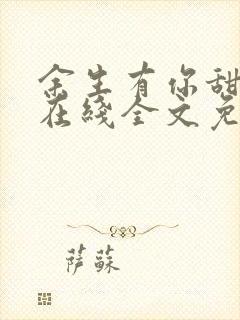 余生有你甜
在綫全文免
萨蘇